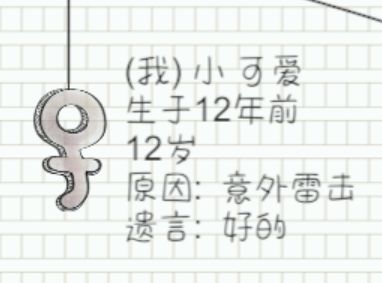 (我) 小可爱
生于12年前
12岁
原因: 意外雷击
遗言: 好的